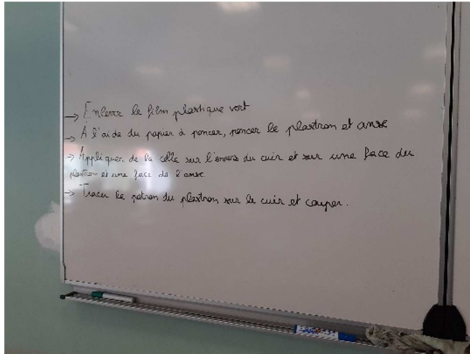 → Enlever le film plastique vert
→ A l'aide du papier à poncer, poncer le plastron et anse
→ Appliquer de la colle sur l'envers du cuir et sur une face du
plastron et une face de l'anse
→ Tracer le patron du plastron sur le cuir et couper.